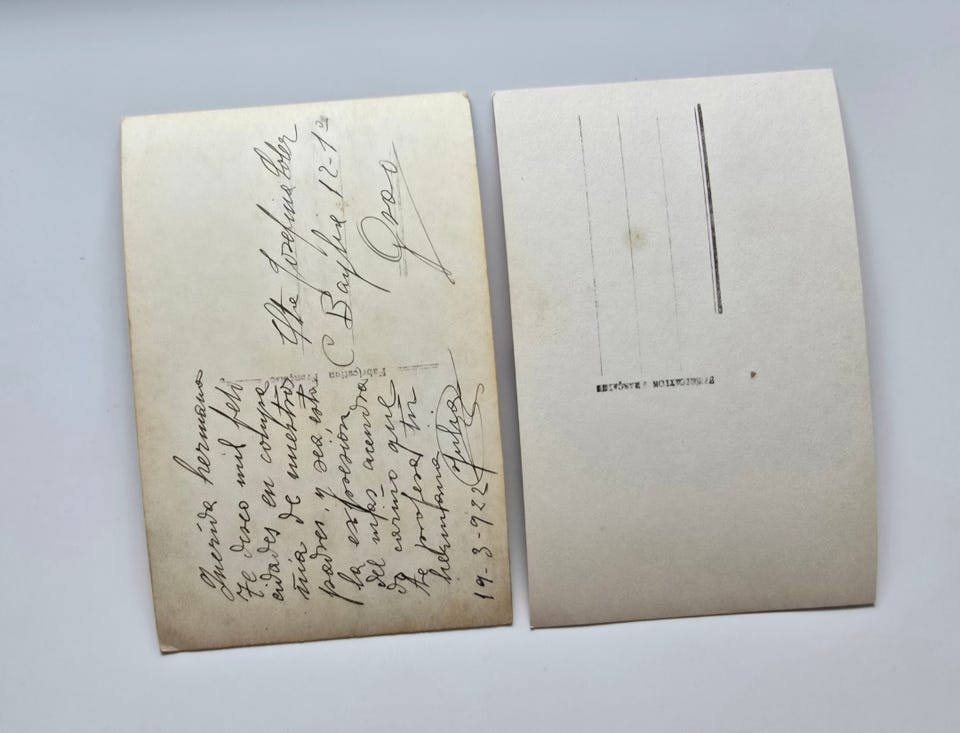 Querida hermana
Te deseo mil feli
cidades en compa
ñia de nuestros
padres, y sea esta
la expresión
del mas acendra
do cariño que
te profesa tu
hermana
Julia
19-3-922
Josefina Soler
C Baylia 12-1º
Fabrication Française
FABRICATION FRANÇAISE